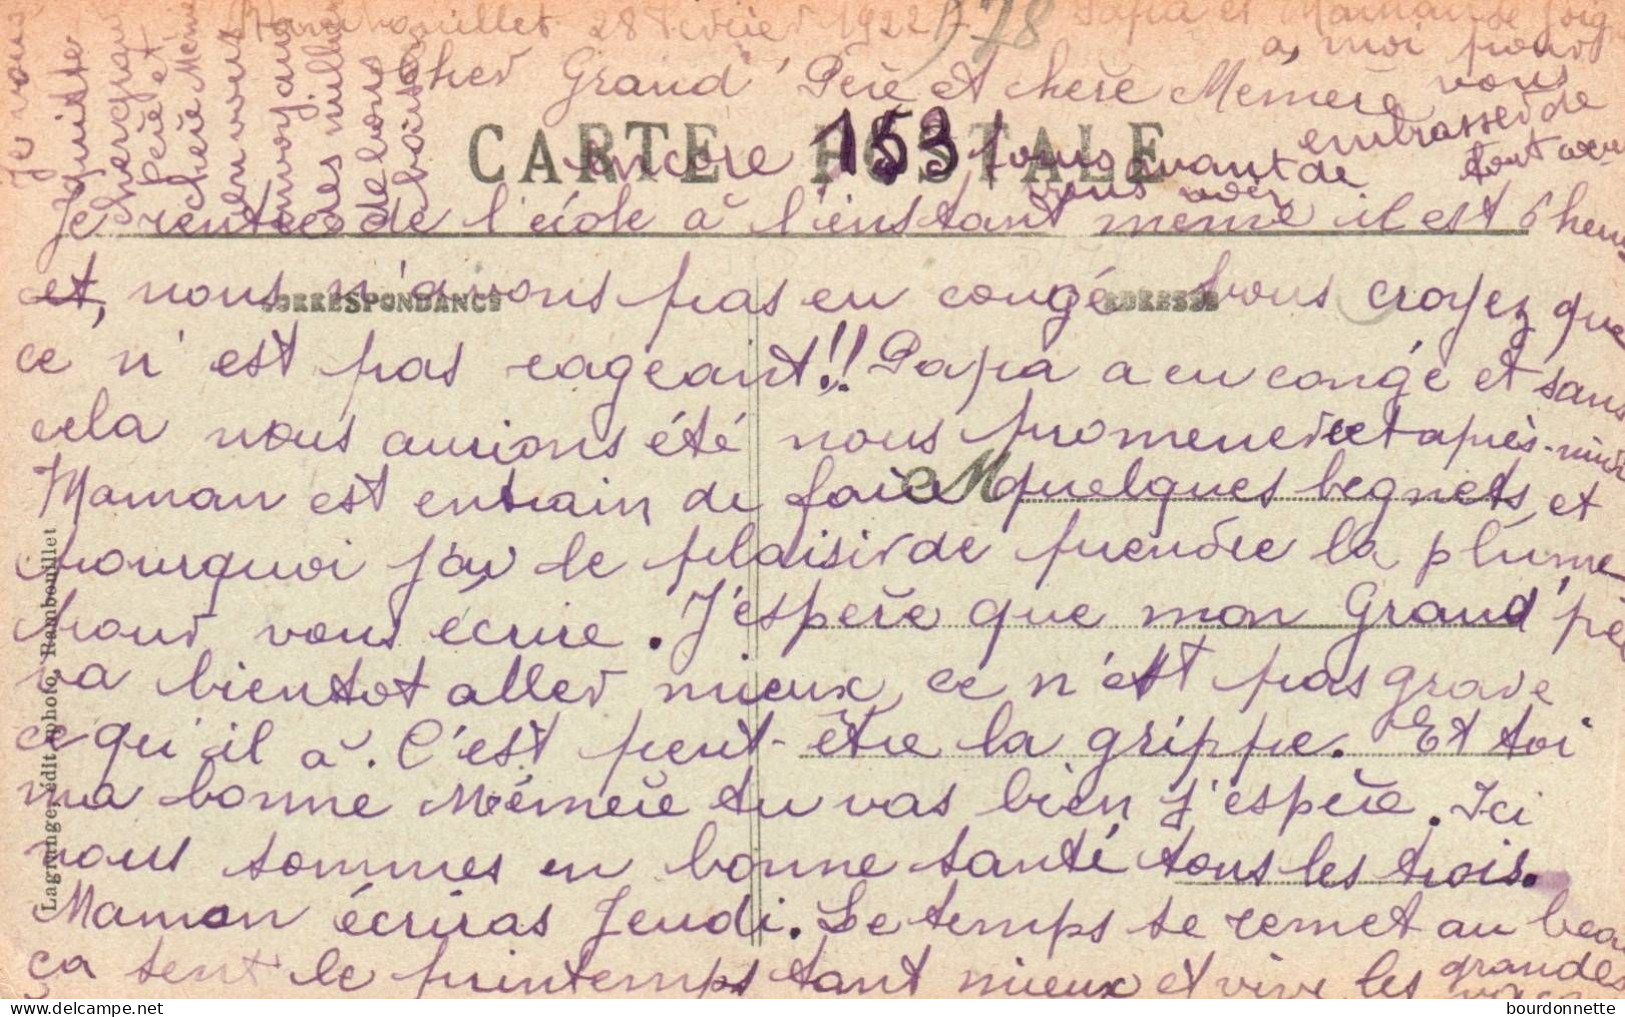 Rambouillet 28 Février 1922
78
Cher Grand'Père et chère Mémère
CARTE POSTALE
encore 153 jours avant de
vous voir
Je rentre de l'école à l'instant même il est 6 heures
et, nous n'avons pas eu congé vous croyez que
CORRESPONDANCE
ADRESSE
ce n'est pas rageant!! Papa a eu congé et sans
cela nous aurions été nous promener cet après-midi
Maman est entrain de faire quelques begnets, et
M
pourquoi j'ai le plaisir de prendre la plume
pour vous écrire. J'espère que mon Grand'père
va bientot aller mieux, ce n'est pas grave
ce qu'il à. C'est peut-être la grippe. Et toi
ma bonne Mémère tu vas bien j'espère. Ici
nous sommes en bonne santé tous les trois.
Maman écriras Jeudi. Le temps se remet au beau
ça sent le printemps tant mieux et vive les grandes
Je vous
quitte
cher grand
Père et
chère Mémère
en vous
envoyant
des milliers
de bons
baisers
Papa et Maman se joignent
à moi pour
vous
embrasser de
tout coeur
Lagrange, édit. photo, Rambouillet
bourdonnette